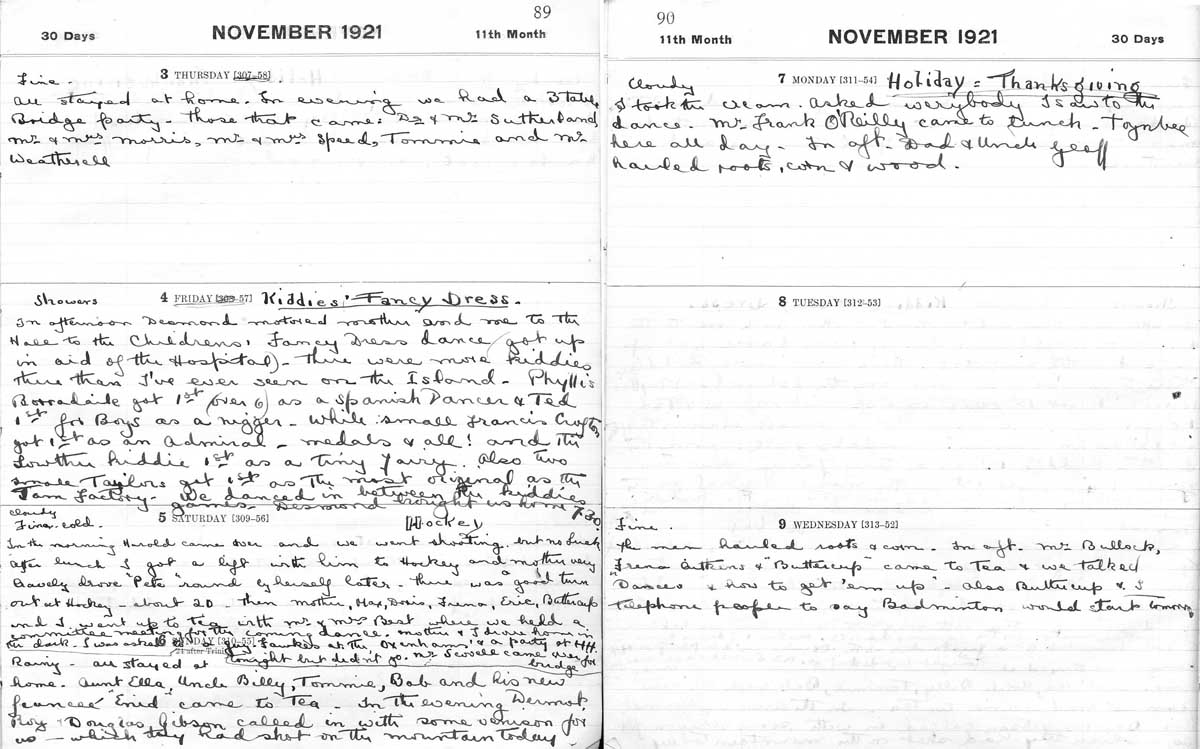 89
30 Days NOVEMBER 1921 11th Month
3 THURSDAY [307-58]
Fine.
All stayed at home. In evening we had a 3 table
Bridge party - those that came: Dr & Mr Sutherland,
Mr & Mrs Morris, Mr & Mrs Speed, Tommie and Mr
Weatherell
Showers 4 FRIDAY [308-57] Kiddies' Fancy Dress.
In afternoon Desmond motored mother and me to the
Hall to the Childrens' Fancy Dress dance (got up
in aid of the Hospital) - There were more kiddies
there than I've ever seen on the Island - Phyllis
Borradaile got 1st (over 6) as a Spanish Dancer & Ted
1st for Boys as a nigger - While small Francis Crofton
got 1st as an Admiral - medals & all! and the
Lowther kiddie 1st as a tiny Fairy. Also two
small Taylors got 1st as the most original as the
Jam Factory - We danced in between the kiddies
games - Desmond brought us home 7.30
cloudy 5 SATURDAY [309-56] Hockey
Fine - cold.
In the morning Harold came over and we went shooting. but no luck
after lunch I got a lift with him to Hockey and mother very
bravely drove "Pete" round by herself later - There was good turn
out at Hockey - about 20 - Then mother, Max, Doris, Irena, Eric, Buttercup
and I went up to tea with Mr & Mrs Best where we held a
committee meeting for the coming dance. Mother & I drove home in
the dark. I was asked to a Guy Fawkes at the Oxenhams' & a party at HH.
6 SUNDAY [310-55]
24 after Trinity
tonight but didn't go. Mr Scovell came over for
bridge
Rainy - All stayed at
home. Aunt Ella, Uncle Billy, Tommie, Bob and his new
feancee "Enid" came to Tea - In the evening Dermot,
Roy & Douglas Gibson called in with some venison for
us - which they had shot on the mountain today -
90
11th Month NOVEMBER 1921 30 Days
Cloudy 7 MONDAY [311-54] Holiday = Thanksgiving
I took the cream. Asked everybody I saw to the
dance. Mr Frank O'Reilly came to Lunch - Toynbee
here all day - In aft. Dad & Uncle Geoff
hauled roots, corn & wood.
8 TUESDAY [312-53]
Fine. 9 WEDNESDAY [313-52]
The men hauled roots & corn. In aft. Mr Bullock,
Irena Aitkens & "Buttercup" came to Tea & we talked
"Dances" & how to get 'em up" - also Buttercup & I
telephone people to say Badminton would start tomorrow